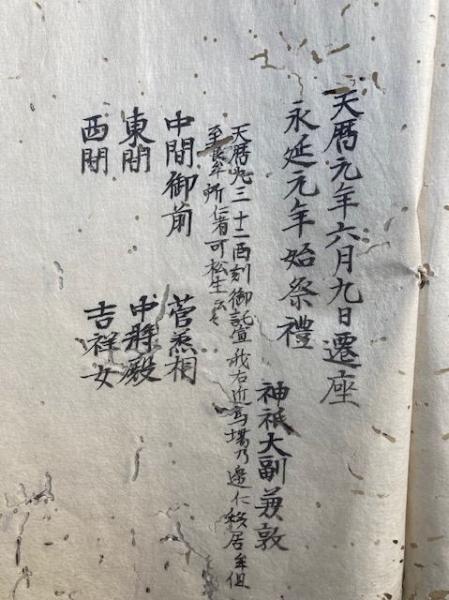 天暦元年六月九日遷座
永延元年始祭禮
神祇大副兼敦
天暦九三十二酉刻御託宣我右近馬場乃邊仁移居牟但
至良牟所仁者可松生云々
中間御前 菅丞相
東間 中将殿
西間 吉祥女